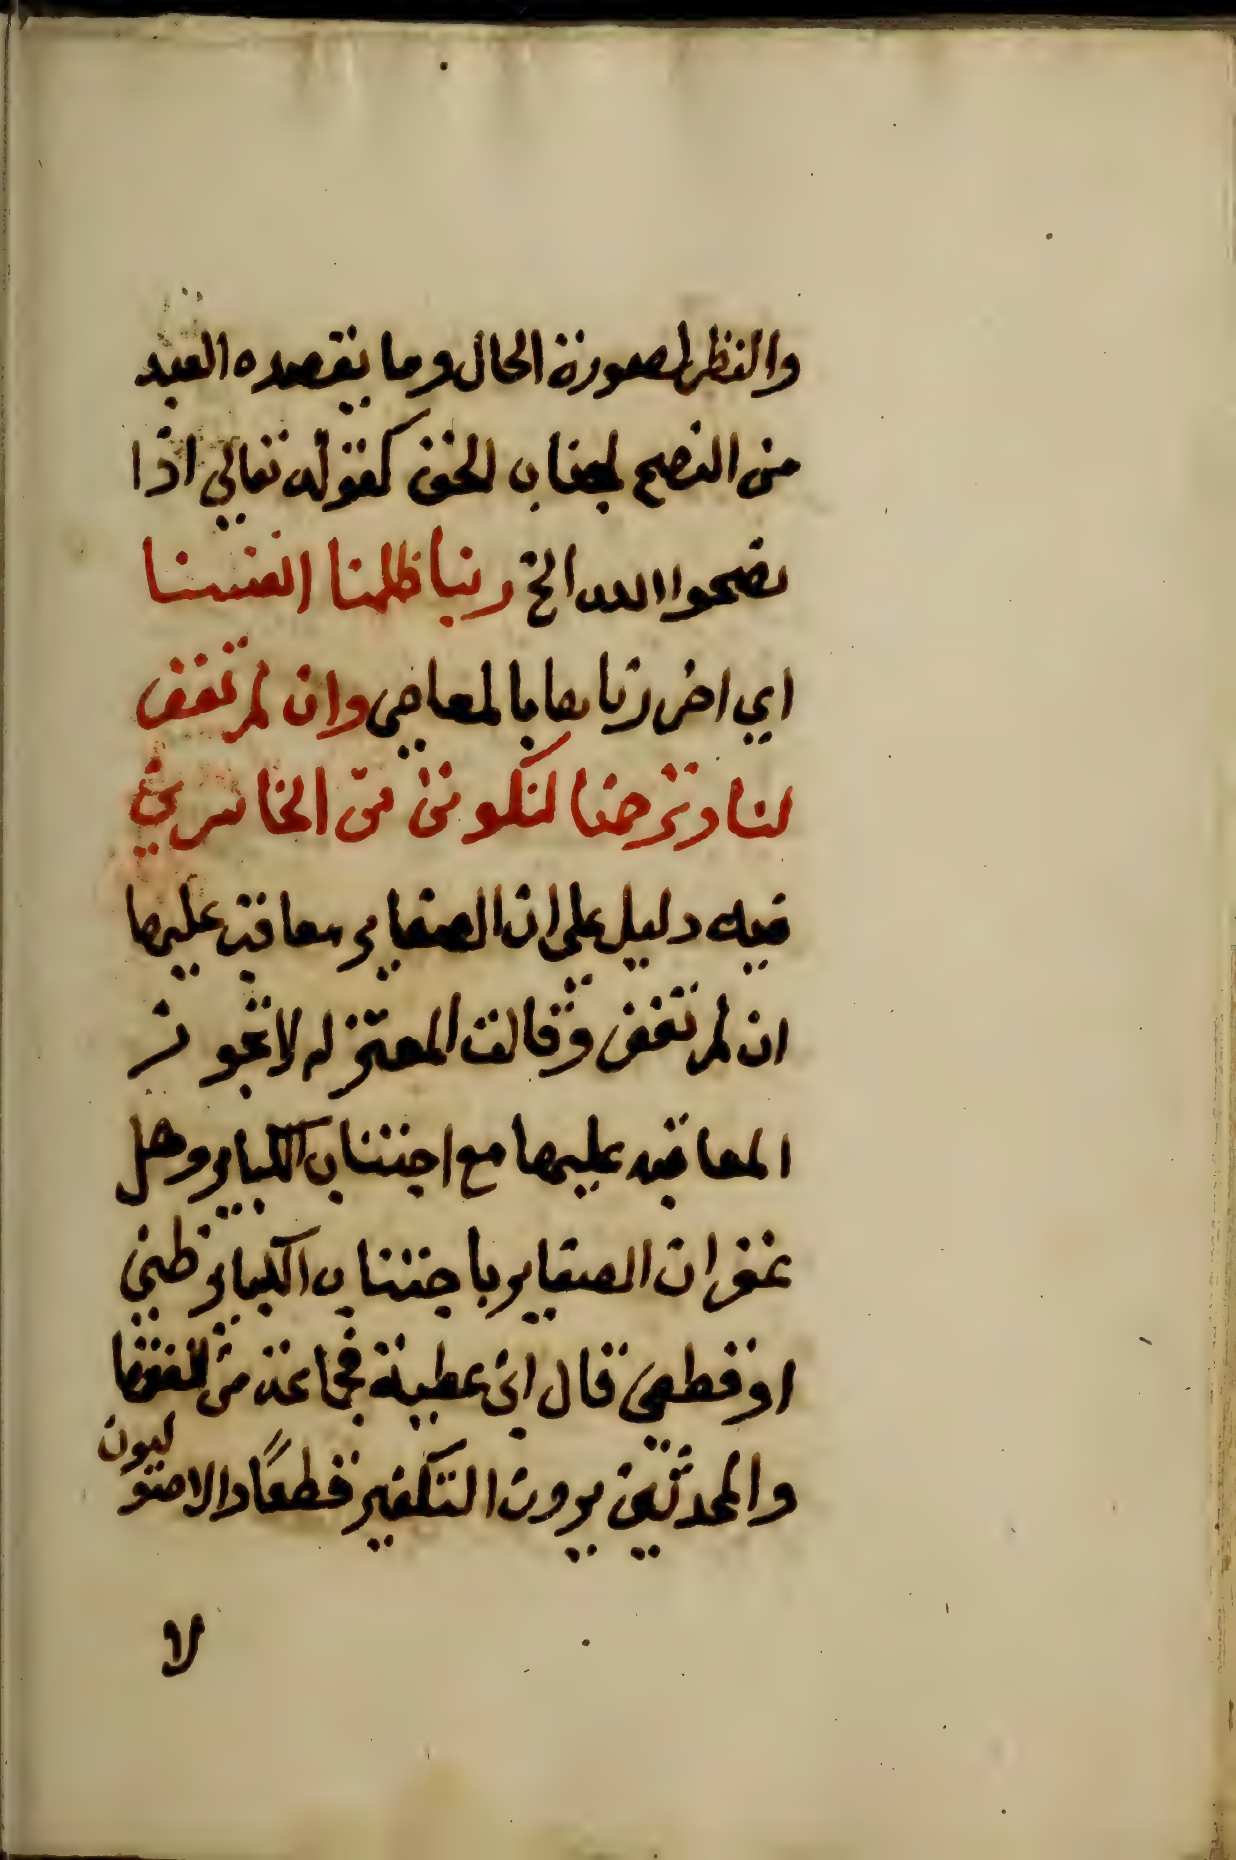 والنظر لصورة الحال وما يقصده العبد
من النصح لجناب الحق كقوله تعالى اذا
نصحوا لله الخ ربنا ظلمنا انفسنا
اي اضررناها بالمعاصي وان لم تغفر
لنا وترحمنا لنكونن من الخاسرين
فيه دليل على ان الصغاير معاقب عليها
ان لم تغفر وقالت المعتزله لا تجوز
المعاقبه عليها مع اجتناب الكباير وهل
غفران الصغاير باجتناب الكباير ظني
او قطعي قال ابن عطية فجماعة من الفقها
والمحدثين يرون التكفير قطعًا والاصوليون
لا